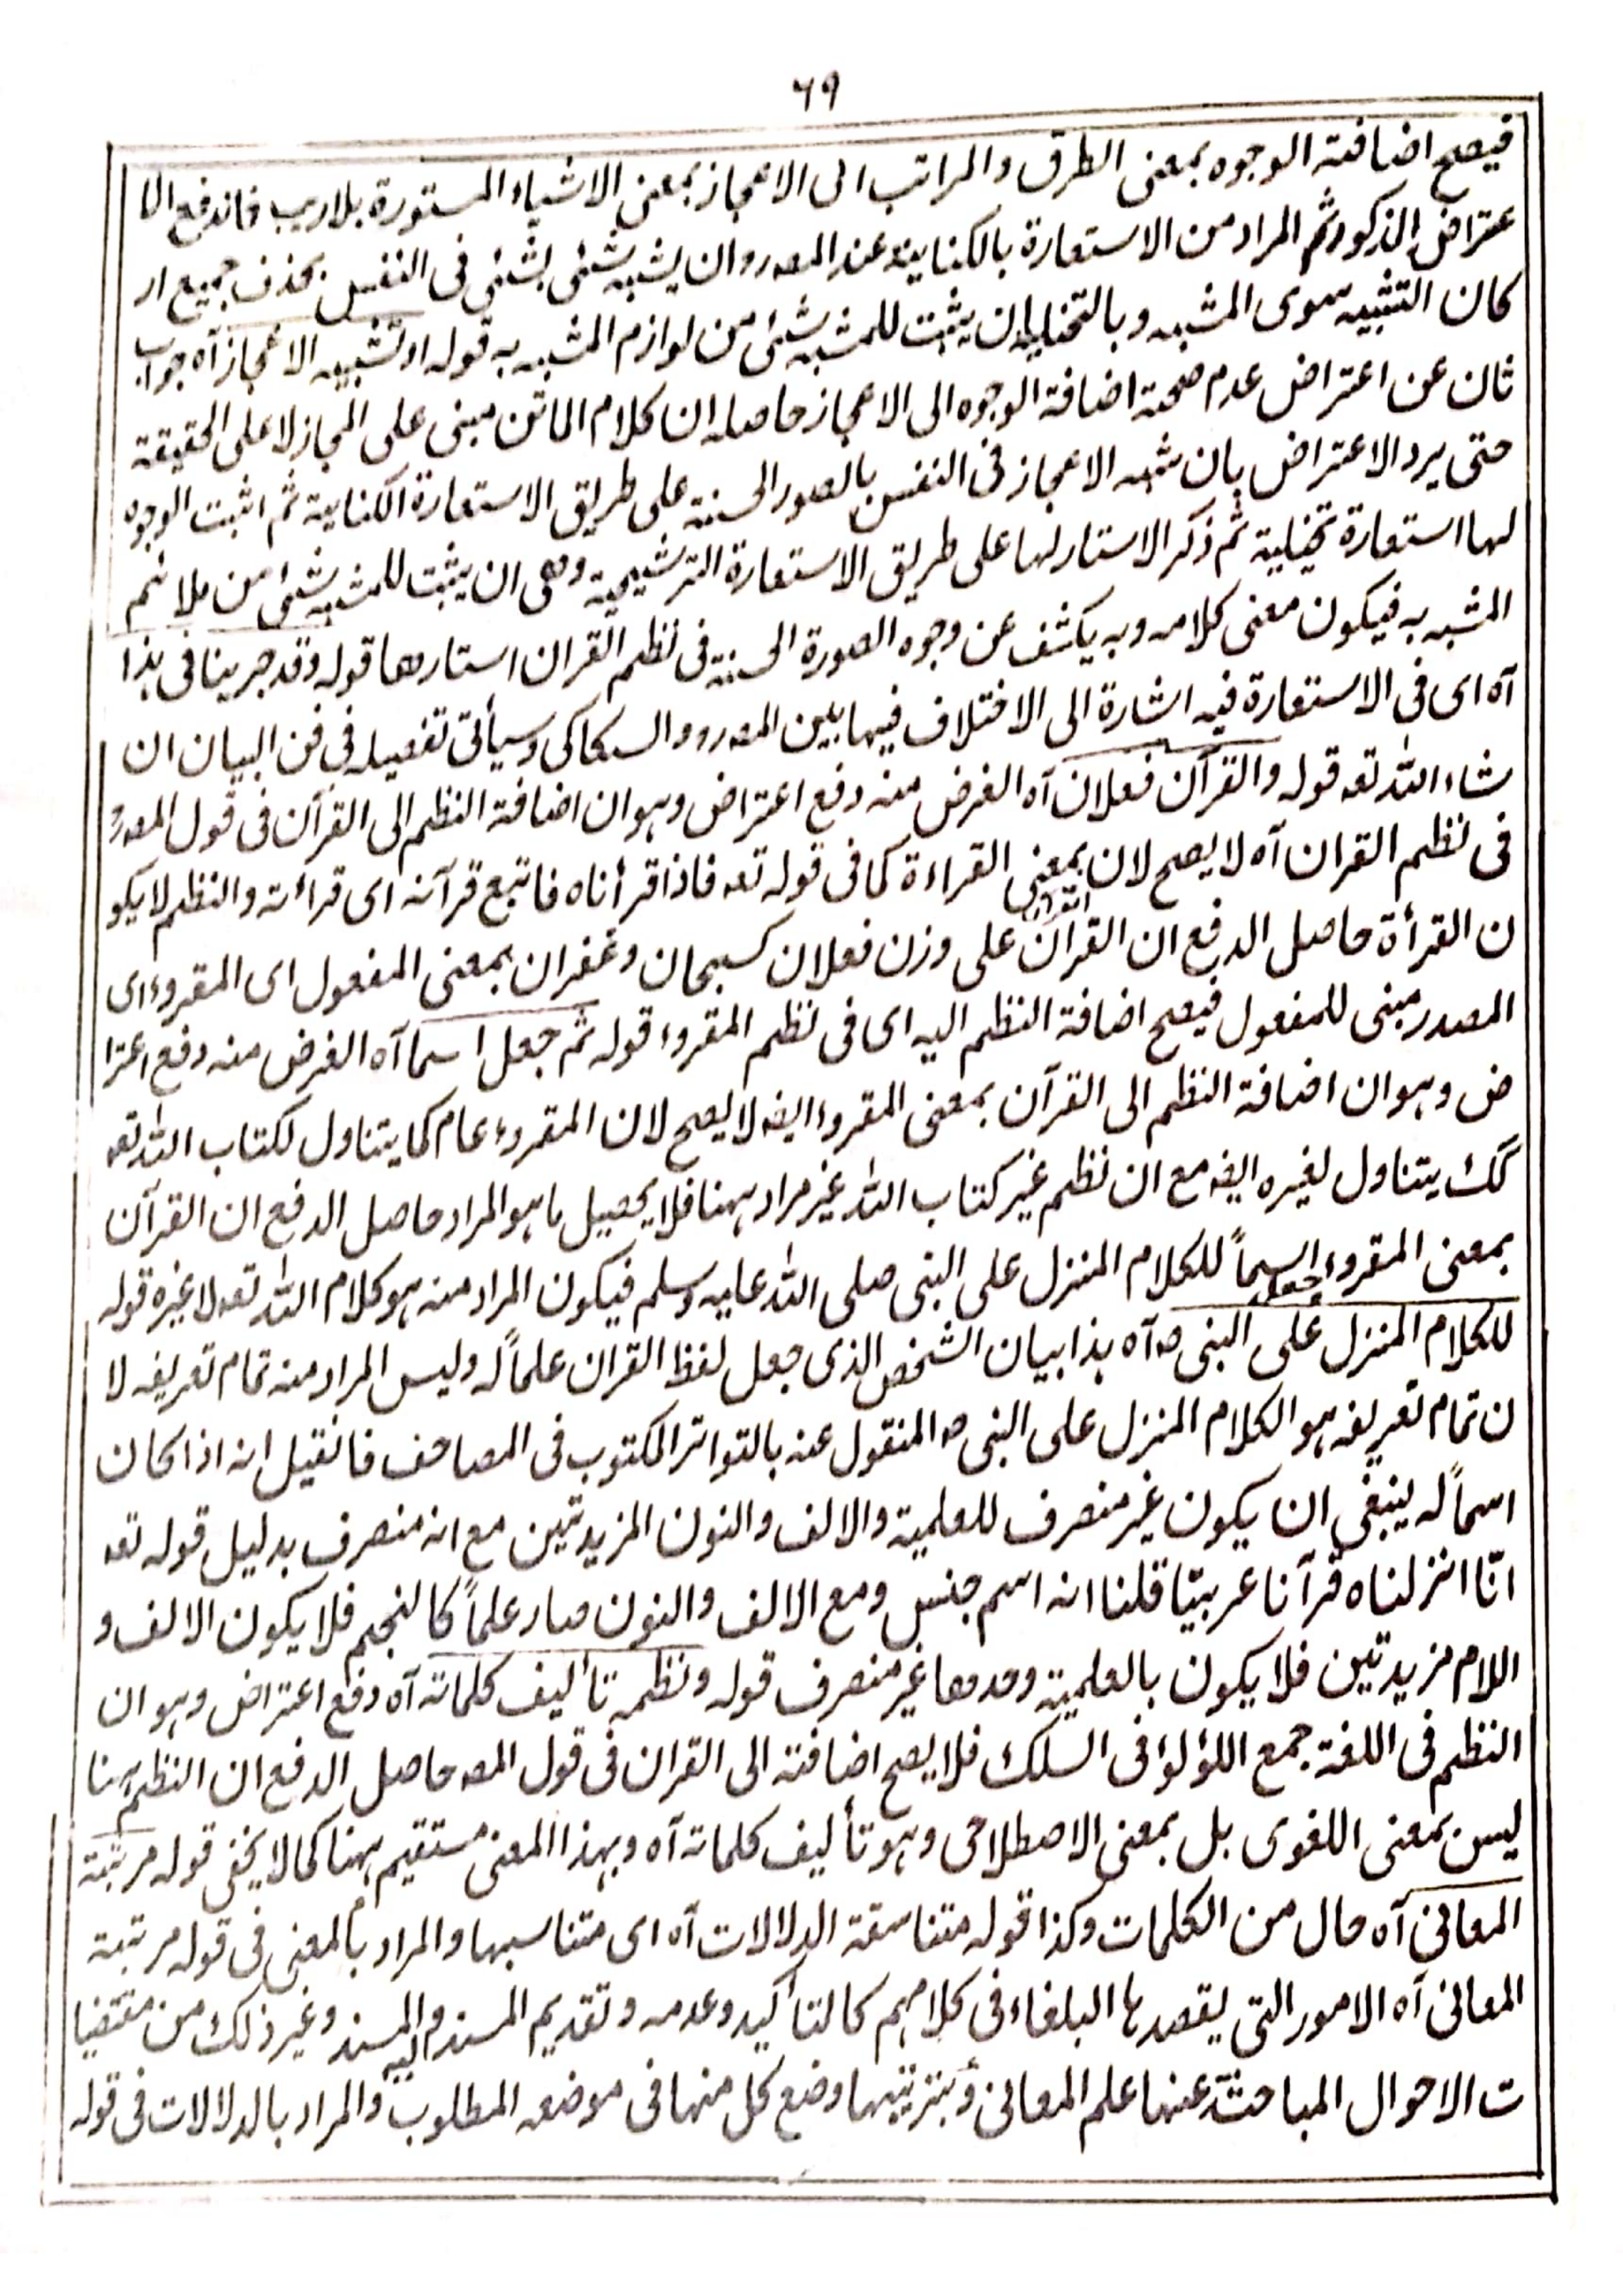 ٦٩
فيصح اضافته الوجوه بمعنى الطرق والمراتب الى الاعجاز بمعنى الاشياء المستورة بلاريب فاندفع الا
عتراض المذكور ثم المراد من الاستعارة بالكناية عند المصـ هو ان يشبه شئى بشئى فى النفس بحذف جميع ار
كان التشبيه سوى المشبه وبالتخييلية ان يثبت للمشبه شئى من لوازم المشبه به قوله او تشبيه الاعجاز آه جواب
ثان عن اعتراض عدم صحته اضافة الوجوه الى الاعجاز حاصله ان كلام الماتن مبنى على المجاز لا على الحقيقة
حتى يرد الاعتراض بان شبه الاعجاز فى النفس بالصور الحسنة على طريق الاستعارة الكناية ثم اثبت الوجوه
لها استعارة تخيلية ثم ذكر الاستار لها على طريق الاستعارة الترشيحية وهى ان يثبت للمشبه شئى من ملائم
المشبه به فيكون معنى كلامه وبه يكشف عن وجوه الصورة الحسنة فى نظم القران استارها قوله وقد جرينا فى هذا
آه اى فى الاستعارة فيه اشارة الى الاختلاف فيها بين المصـ و السكاكى وسيأتى تفصيله فى فن البيان ان
شاء الله تعـ قوله والقرآن فعلان آه الغرض منه دفع اعتراض وهو ان اضافة النظم الى القرآن فى قول المصـ و
فى نظم القران آه لا يصح لان القرآن بمعنى القراءة كما فى قوله تعـ فاذا قرأناه فاتبع قرآنه اى قرائته والنظم لا يكو
ن القرأة حاصل الدفع ان القرآن على وزن فعلان كسبحان وغفران بمعنى المفعول اى المقروء اى
المصدر مبنى للمفعول فيصح اضافة النظم اليه اى فى نظم المقروء قوله ثم جعل اسما آه الغرض منه دفع اعترا
ض وهو ان اضافة النظم الى القرآن بمعنى المقروء ايضـ لا يصح لان المقروء عام كما يتناول لكتاب الله تعـ
كك يتناول لغيره ايضـ مع ان نظم غير كتاب الله غير مراد ههنا فلا يحصيل ما هو المراد حاصل الدفع ان القرآن
بمعنى المقروء جعل اسماً للكلام المنزل على النبى صلى الله عليه وسلم فيكون المراد منه هو كلام الله تعـ لا غيره قوله
للكلام المنزل على النبى صـ آه هذا بيان الشخص الذى جعل لفظ القران علماً له وليس المراد منه تمام تعريفه لا
ن تمام تعريفه هو الكلام المنزل على النبى صـ المنقول عنه بالتواتر المكتوب فى المصاحف فانقيل انه اذا كان
اسماً له ينبغى ان يكون غير منصرف للعلمية والالف والنون المزيدتين مع انه منصرف بدليل قوله تعـ
انّا انزلناه قرآنا عربيّا قلنا انه اسم جنس ومع الالف والنون صار علماً كالنجم فلا يكون الالف و
اللام مزيدتين فلا يكون بالعلمية وحدها غير منصرف قوله ونظمه تأليف كلماته آه دفع اعتراض وهو ان
النظم فى اللغة جمع اللؤلؤ فى السلك فلا يصح اضافته الى القران فى قول المصـ حاصل الدفع ان النظم ههنا
ليس بمعنى اللغوى بل بمعنى الاصطلاحى وهو تأليف كلماته آه وبهذا المعنى مستقيم ههنا كما لا يخفى قوله مرتبة
المعانى آه حال من الكلمات وكذا قوله متناسقة الدلالات آه اى متناسبها والمراد بالمعنى فى قوله مرتبة
المعانى آه الامور التى يقصدها البلغاء فى كلامهم كالتأكيد وعدمه وتقديم المسند والمسند اليه وغير ذلك من مقتضيا
ت الاحوال المباحثة عنها علم المعانى وبترتيبها وضع كل منها فى موضعه المطلوب والمراد بالدلالات فى قوله